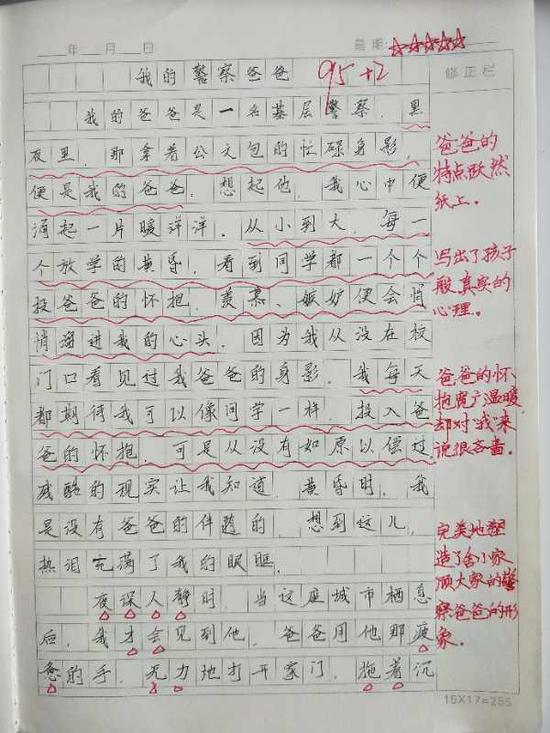 年 月 日
星期: ☆☆☆☆☆
我的警察爸爸
95+2
修正栏
我的爸爸是一名基层警察。黑
夜里，那拿着公文包的忙碌身影，
便是我的爸爸。想起他，我心中便
涌起一片暖洋洋。从小到大，每一
个放学的黄昏，看到同学都一个个
投爸爸的怀抱，羡慕、嫉妒便会悄
悄溜进我的心头。因为我从没在校
门口看见过我爸爸的身影。我每天
都期待我可以像同学一样，投入爸
爸的怀抱。可是从没有如原以偿过，
残酷的现实让我知道，黄昏时，我
是没有爸爸的伴随的。想到这儿，
热泪充满了我的眼眶。
夜深人静时，当这座城市栖息
后，我才会见到他。爸爸用他那疲
惫的手，无力地打开家门，拖着沉
爸爸的
特点跃然
纸上。
写出了孩子
般真实的
心理。
爸爸的怀
抱宽广温暖，
却对“我”来
说很吝啬。
完美地塑
造了舍小家
顾大家的警
察爸爸的形
象。
15X17=255